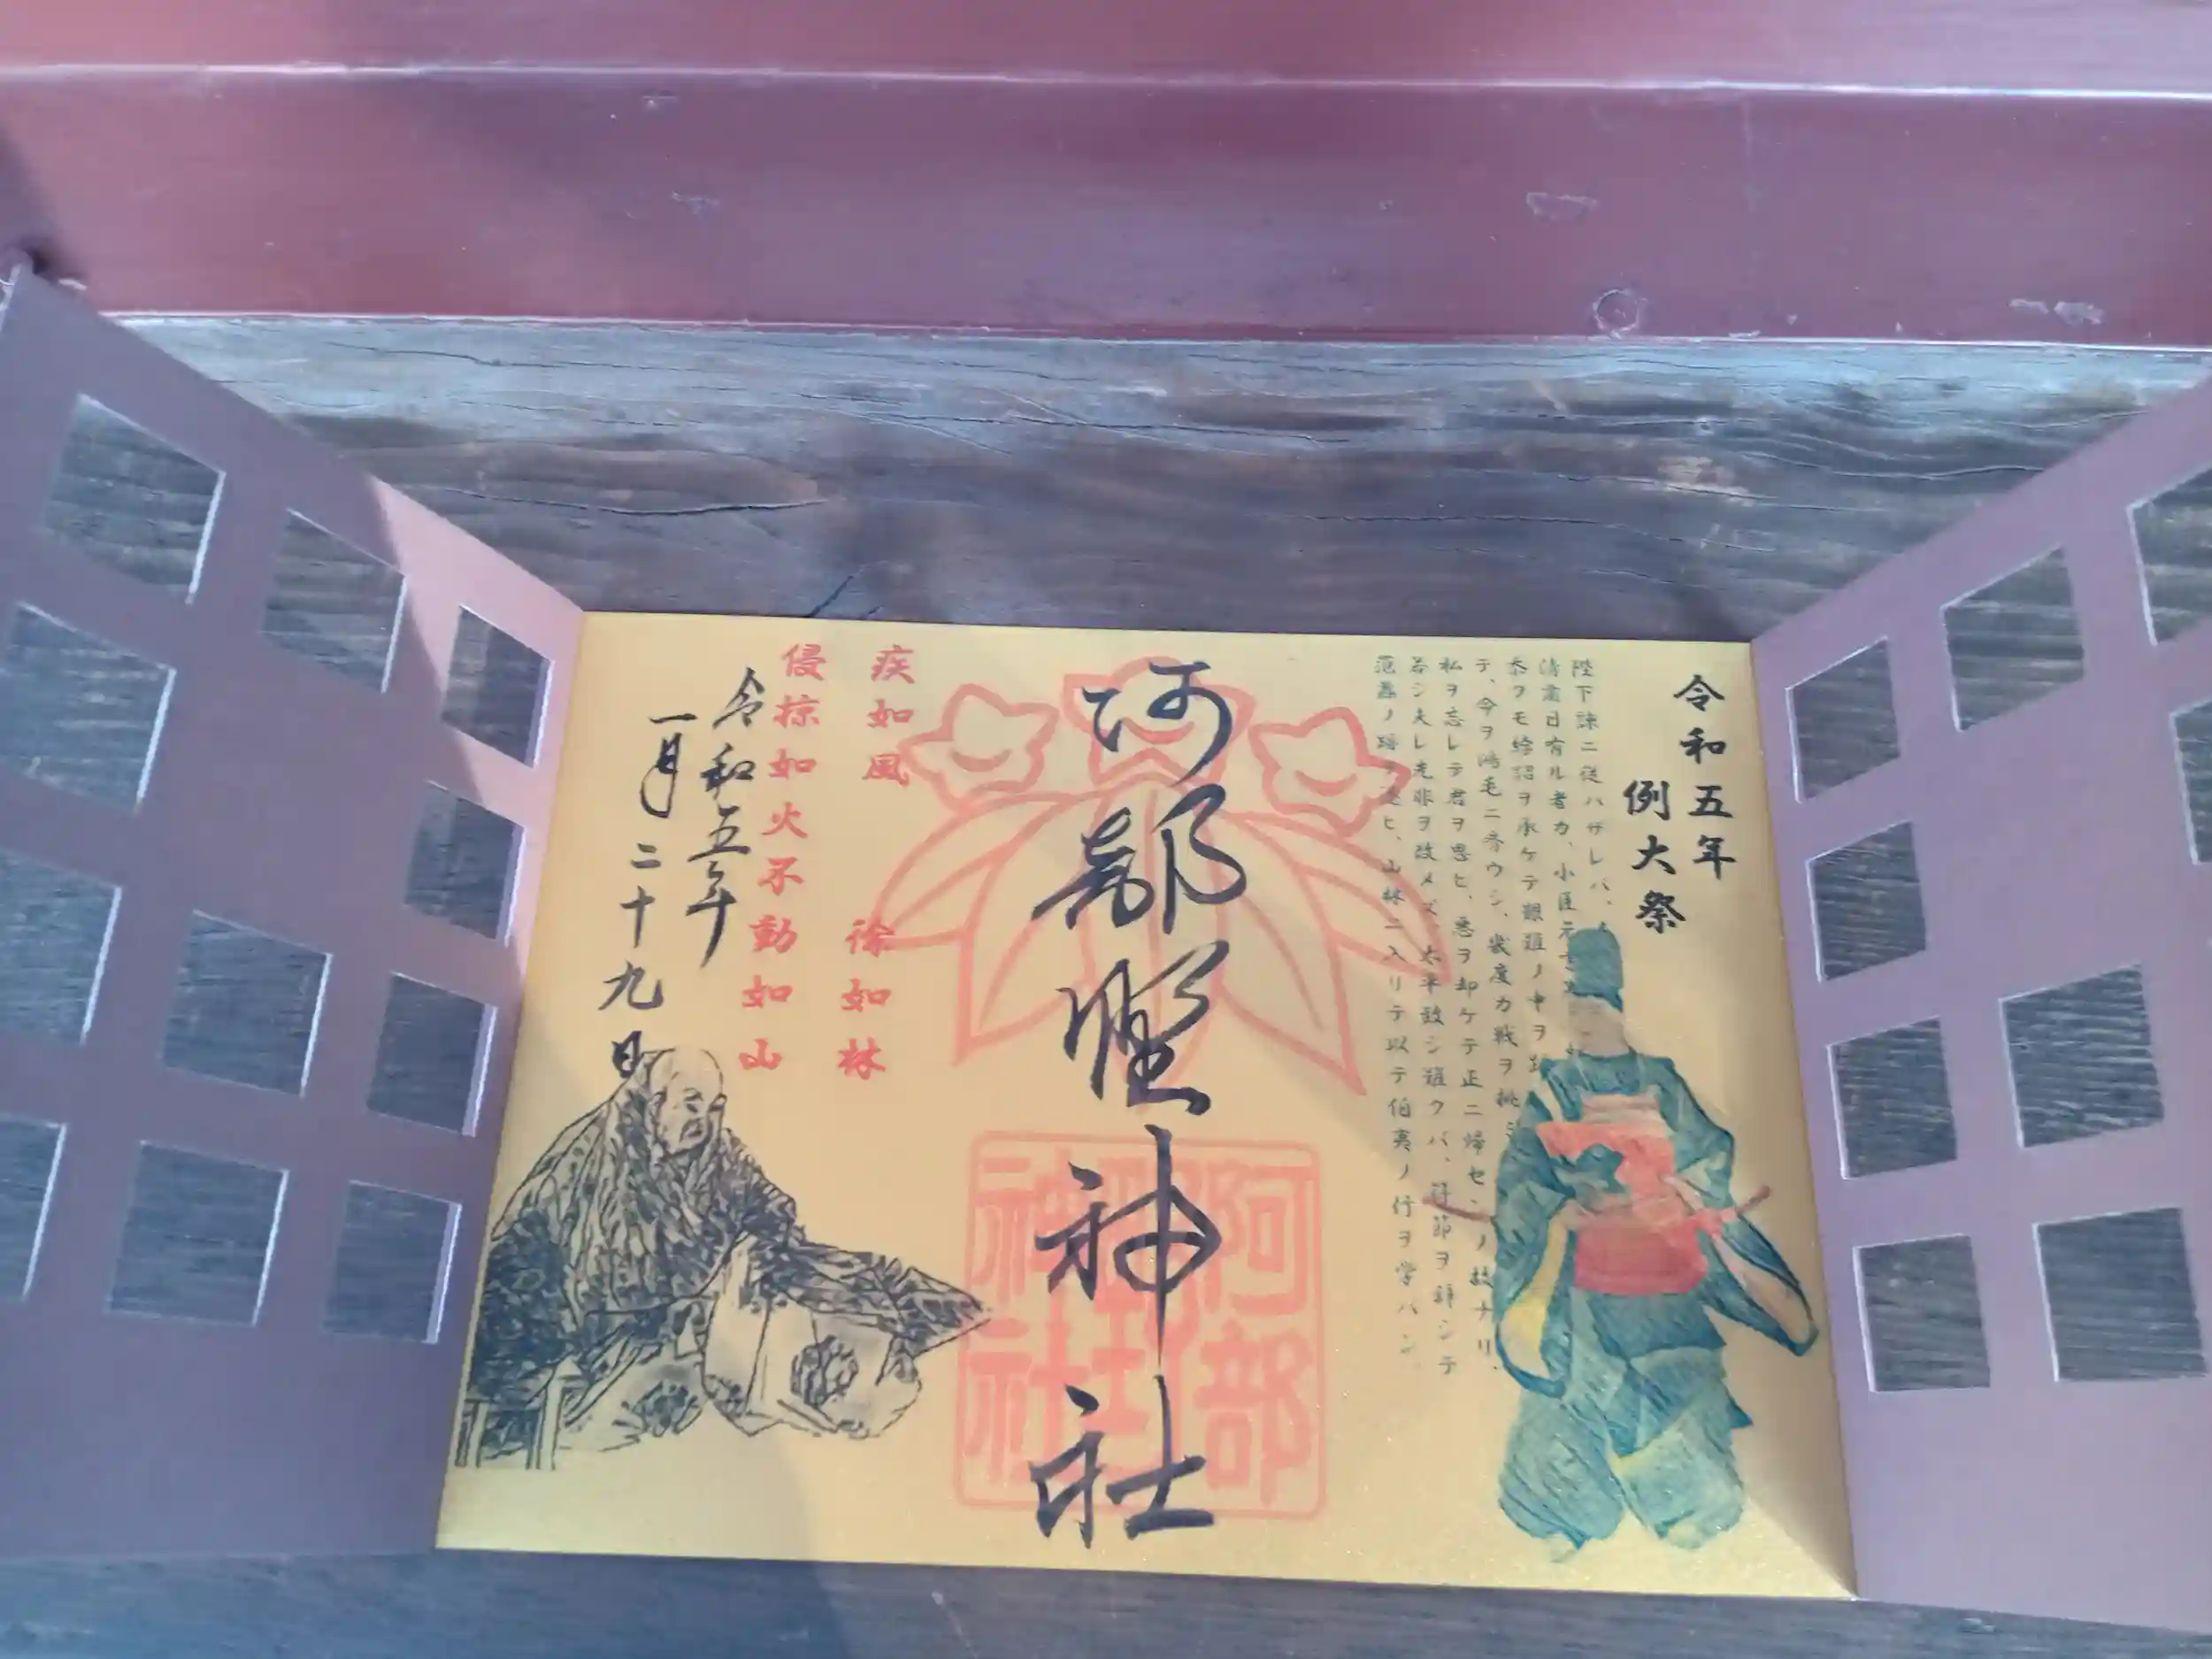 令和五年
例大祭
陛下諫ニ従ハザレバ、
清粛日有ル者カ、小臣元
忝クモ綸詔ヲ承ケテ艱難ノ中ヲ
テ、今ヲ鴻毛ニ奇ウシ、幾度カ戦ヲ挑
私ヲ忘レテ君ヲ思ヒ、悪ヲ却ケテ正ニ帰セ ノ故ナリ、
若シ夫レ先非ヲ改メズ、太平致シ難クバ、符節ヲ辞シテ
范蠡ノ跡 ヒ、山林ニ入リテ以テ伯夷ノ行ヲ学バン
阿部野神社
阿部野神社
疾如風 徐如林
侵掠如火不動如山
令和五年
一月二十九日